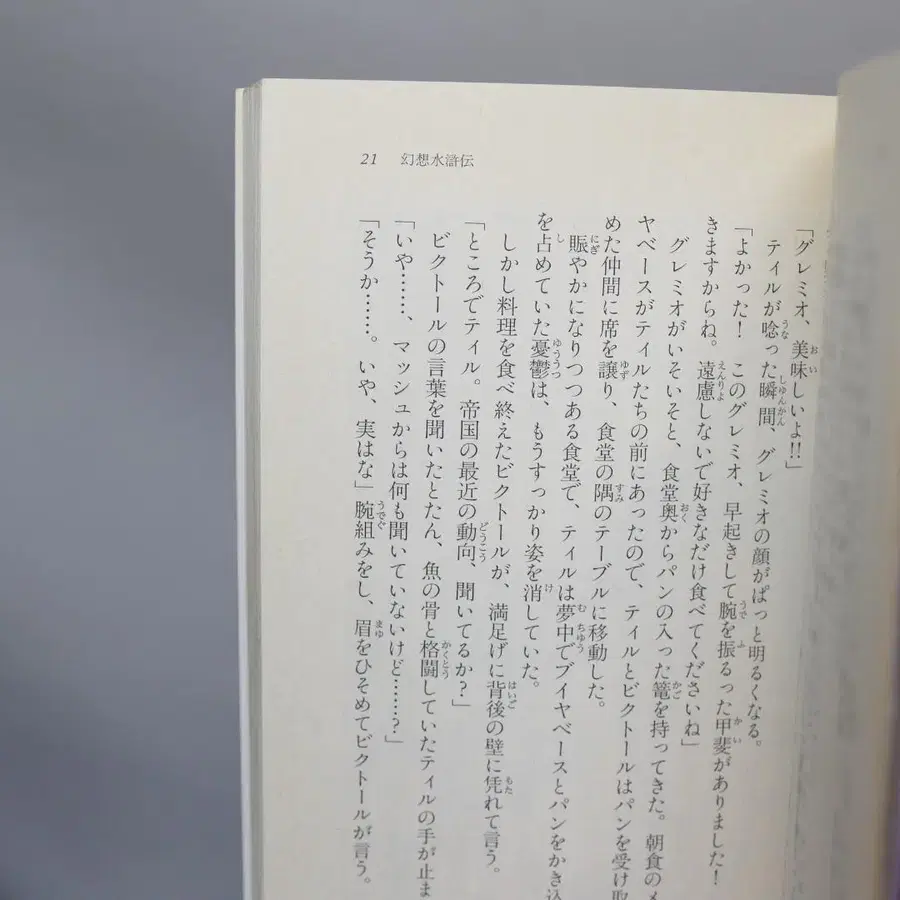 21 幻想水滸伝
「グレミオ、美味しいよ!!」
ティルが唸った瞬間、グレミオの顔がぱっと明るくなる。
「よかった! このグレミオ、早起きして腕を振るった甲斐がありました!
きますからね。遠慮しないで好きなだけ食べてくださいね」
グレミオがいそいそと、食堂奥からパンの入った篭を持ってきた。朝食のメ
ヤベースがティルたちの前にあったので、ティルとビクトールはパンを受け取
めた仲間に席を譲り、食堂の隅のテーブルに移動した。
賑やかになりつつある食堂で、ティルは夢中でブイヤベースとパンをかき込
を占めていた憂鬱は、もうすっかり姿を消していた。
しかし料理を食べ終えたビクトールが、満足げに背後の壁に凭れて言う。
「ところでティル。帝国の最近の動向、聞いてるか?」
ビクトールの言葉を聞いたとたん、魚の骨と格闘していたティルの手が止ま
「いや………、マッシュからは何も聞いていないけど……?」
「そうか……。いや、実はな」腕組みをし、眉をひそめてビクトールが言う。